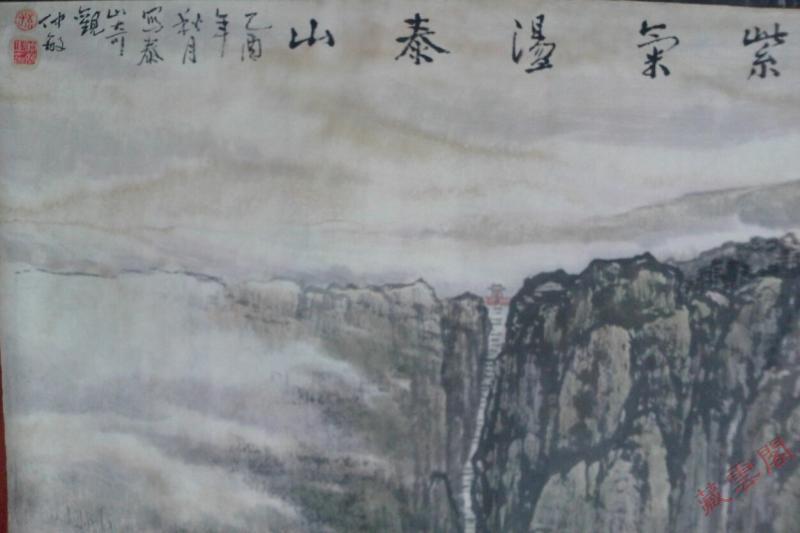 紫氣盪泰山
乙酉
年
秋月
寫泰
山奇
觀
仲敏
藏雲閣